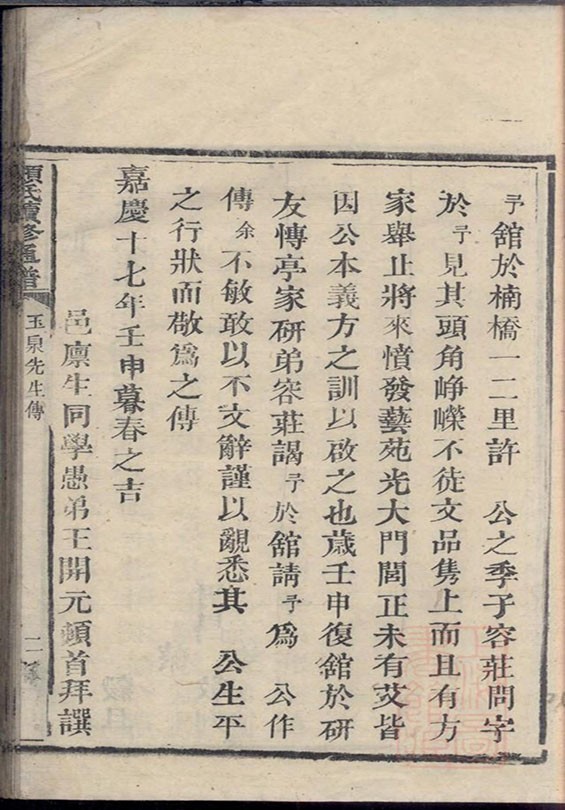 予舘於楠橋一二里許　公之季子容莊問字
於予見其頭角崢嶸不徒文品雋上而且有方
家舉止將來憤發藝苑光大門閭正未有艾皆
因公本義方之訓以啟之也歲壬申復舘於研
友慱亭家研弟容莊謁予於舘請予為　公作
傳余不敏敢以不文辭謹以覼悉其　公生平
之行狀而敬爲之傳
嘉慶十七年壬申暮春之吉
邑廪生同學愚弟王開元頓首拜譔
氏續修通譜
玉泉先生傳
二